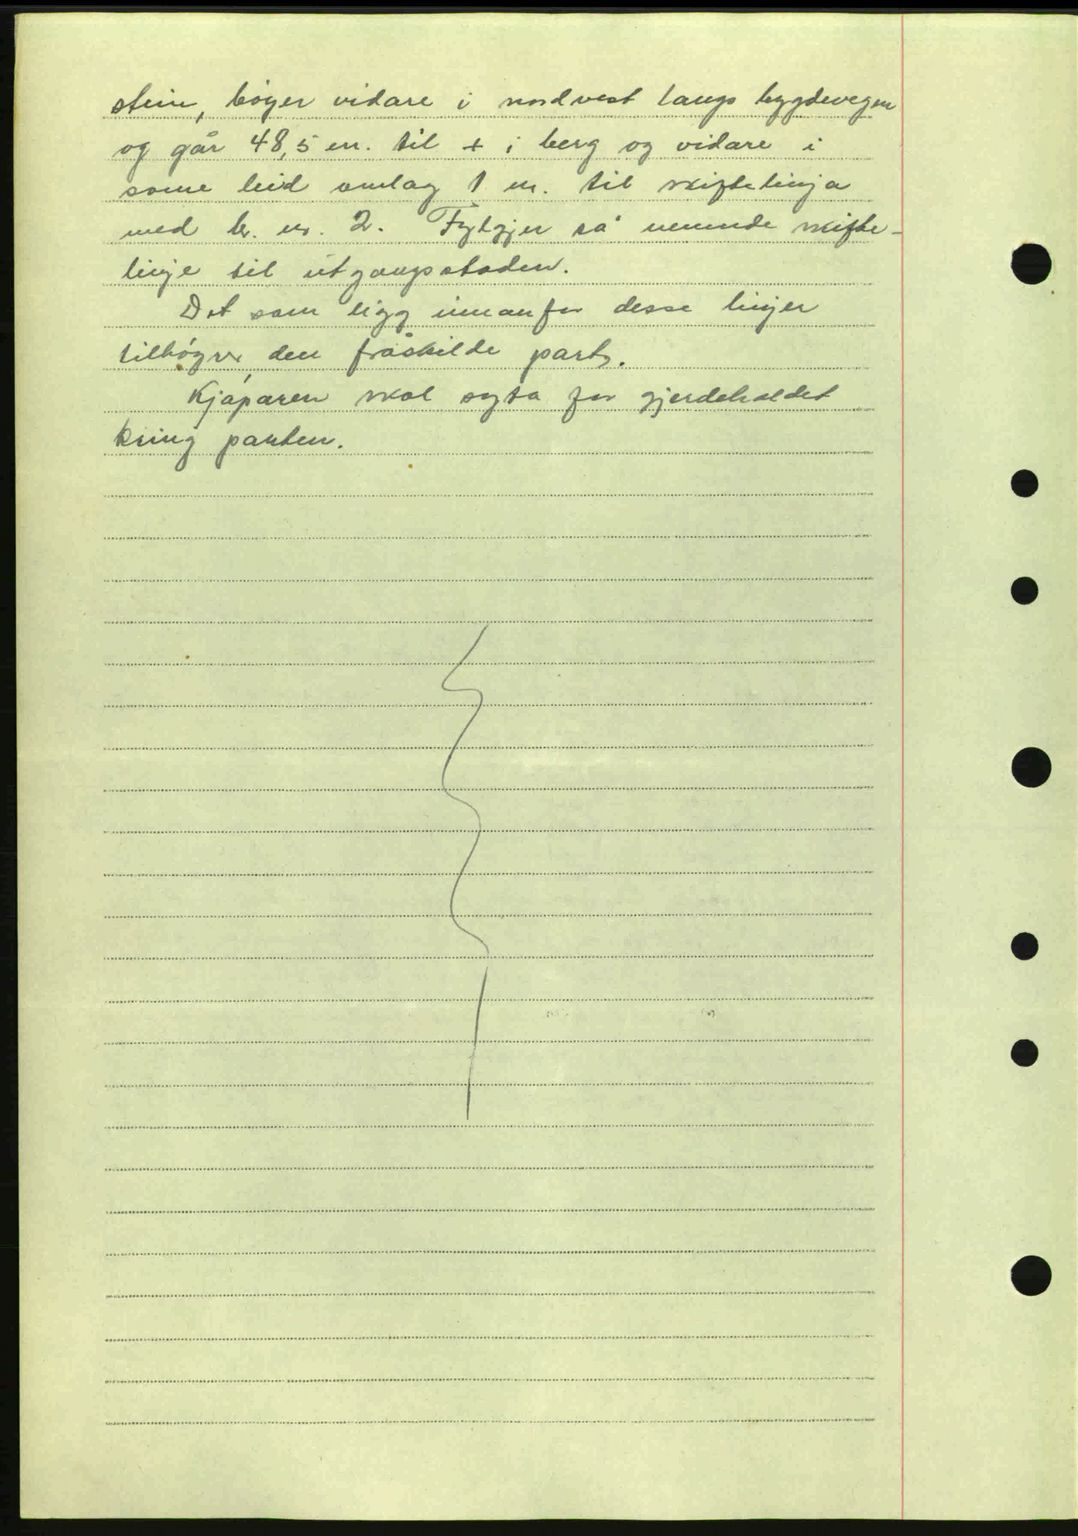 stein, bøyer vidare i nordvest langs bygdevegen
og går 48,5 m. til + i berg og vidare i
same leid omlag 1 m. til skiftelinja
med br. nr. 2. Fylgjer så nemnde skifte-
linje til utgangsstaden.
Det som ligg innanfor desse linjer
tilhøyrer den fråskilde part.
Kjøparen skal syta for gjerdehaldet
kring parten.